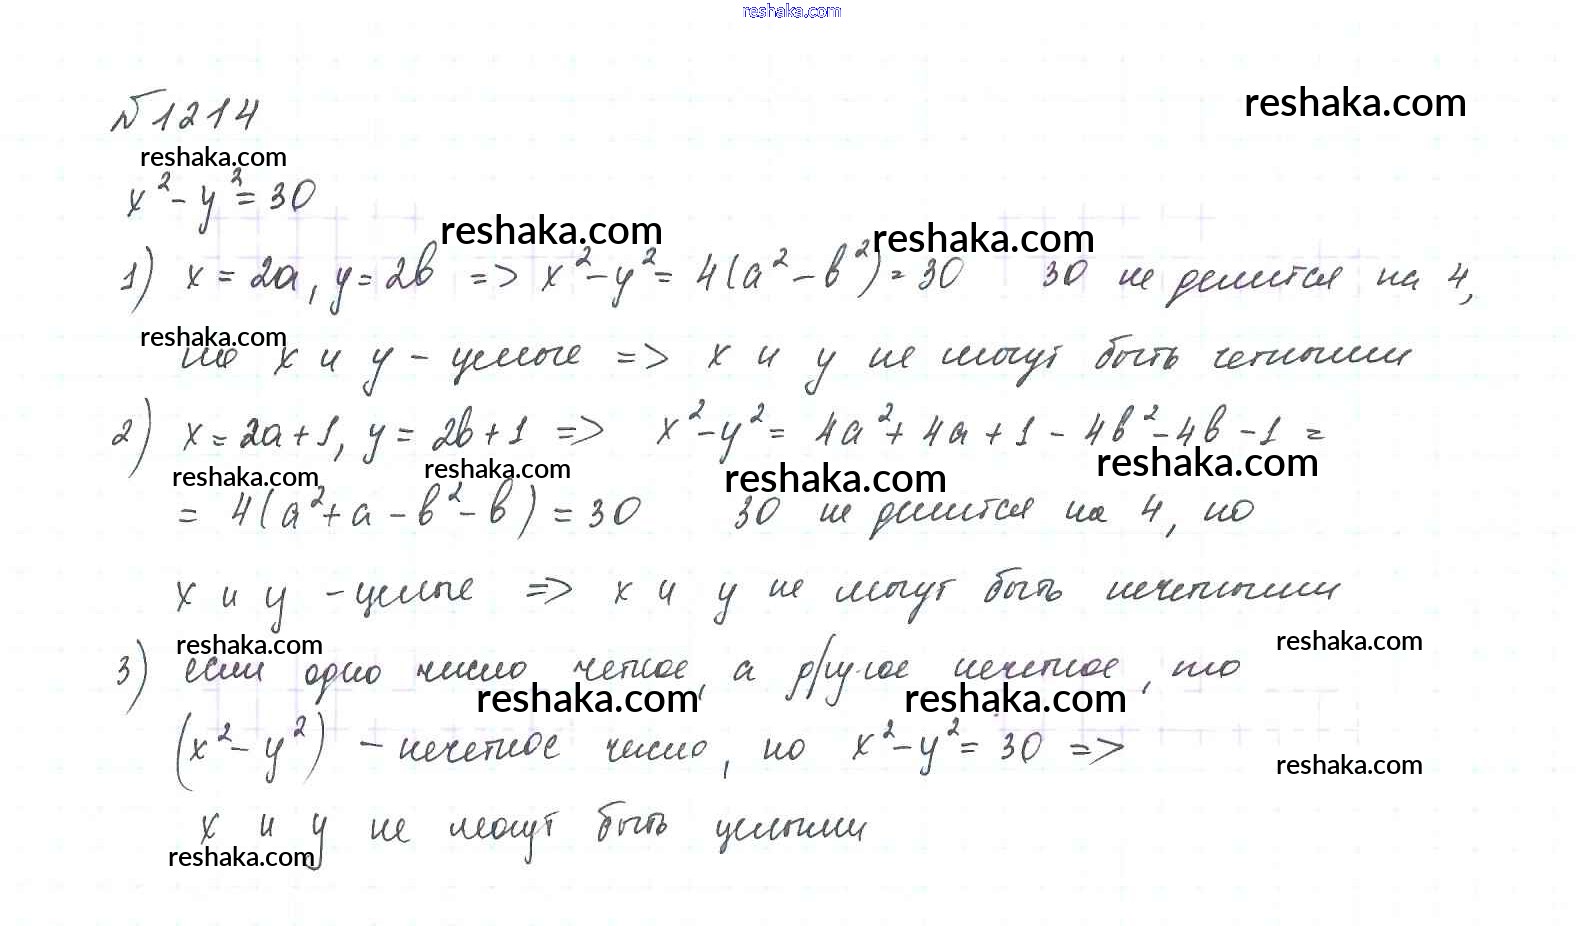 reshaka.com
№1214
reshaka.com
reshaka.com
x² - y² = 30
reshaka.com reshaka.com
1) x = 2a, y = 2b => x² - y² = 4(a² - b²) = 30 30 не делится на 4,
reshaka.com
но x и y - целые => x и y не могут быть четными
2) x = 2a + 1, y = 2b + 1 => x² - y² = 4a² + 4a + 1 - 4b² - 4b - 1 =
reshaka.com reshaka.com reshaka.com reshaka.com
= 4(a² + a - b² - b) = 30 30 не делится на 4, но
x и y - целые => x и y не могут быть нечетными
reshaka.com reshaka.com
3) если одно число четное, а другое нечетное, то
reshaka.com reshaka.com
(x² - y²) - нечетное число, но x² - y² = 30 =>
reshaka.com
x и y не могут быть целыми
reshaka.com